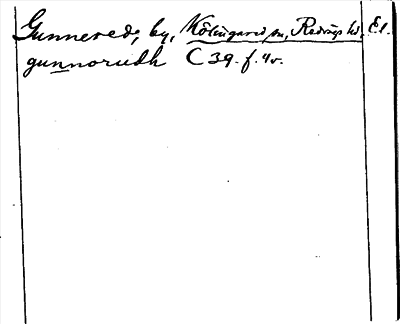 Gunnered, by, Kölingared sn, Redvägs hd, El.
gunnorudh C 39. f. 4v.